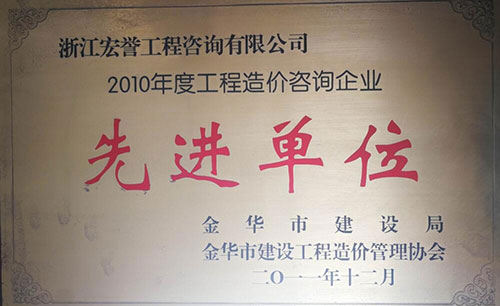 浙江宏誉工程咨询有限公司
2010年度工程造价咨询企业
先进单位
金华市建设局
金华市建设工程造价管理协会
二〇一一年十二月